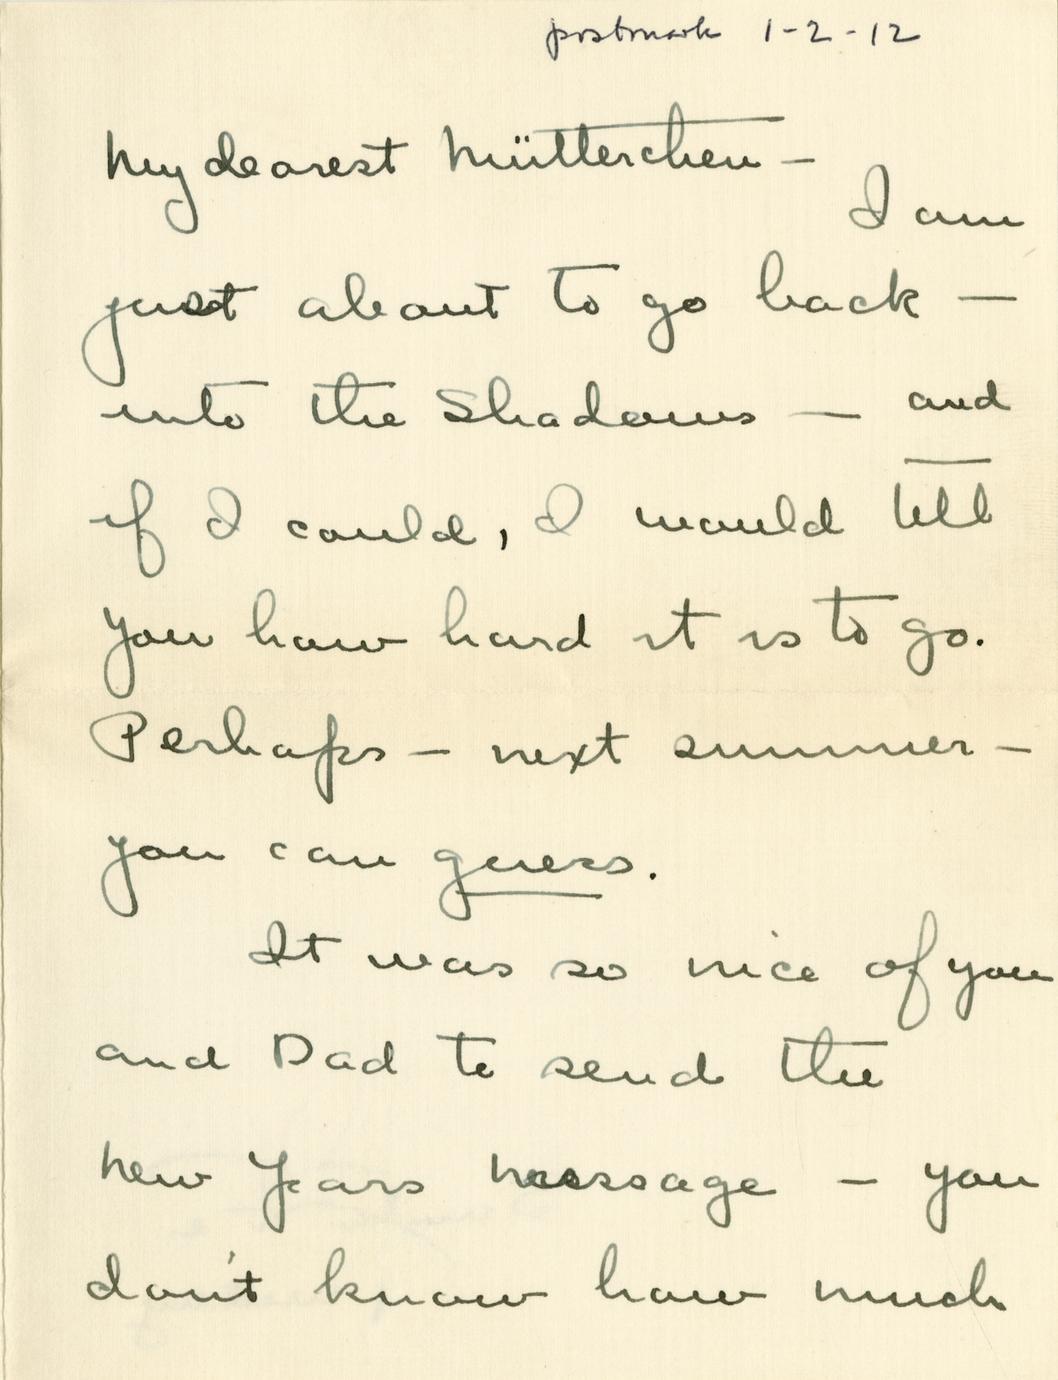 postmark 1-2-12
My dearest Mütterchen —
I am
just about to go back —
into the Shadows — and
if I could, I would tell
you how hard it is to go.
Perhaps — next summer —
you can guess.
It was so nice of you
and Dad to send the
New Years message — you
don't know how much